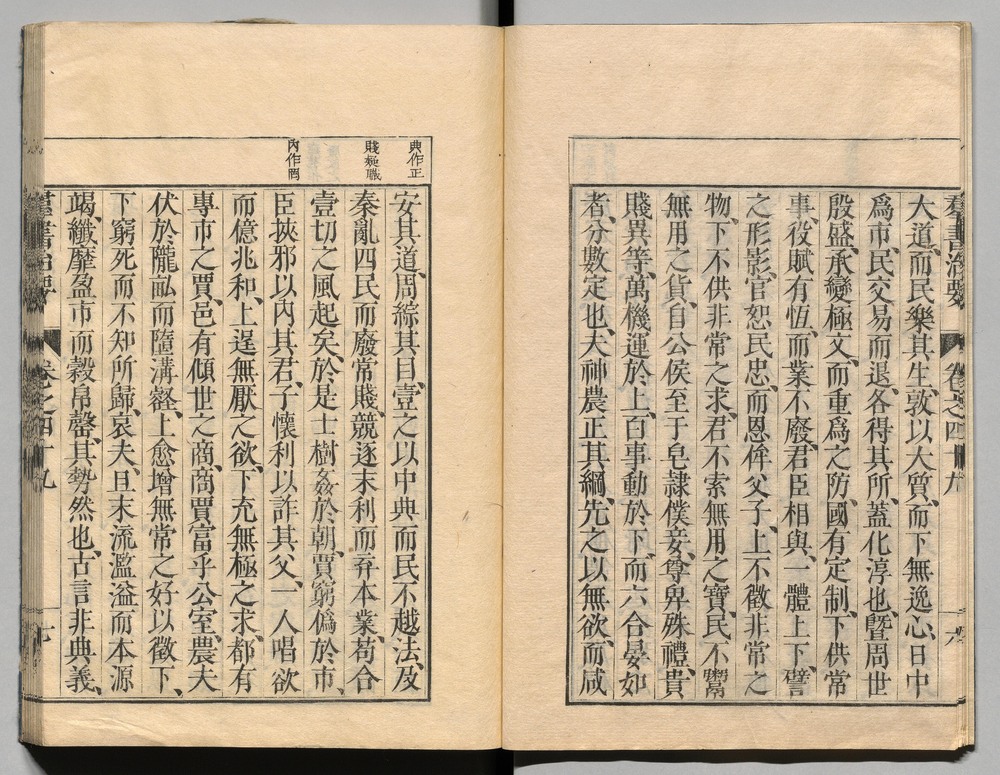 大道、而民樂其生、敦以大質、而下無逸心、日中
爲市、民交易而退、各得其所、蓋化淳也、曁周世
殷盛、承變極文、而重爲之防、國有定制、下供常
事、役賦有恆、而業不廢、君臣相與、一體上下、譬
之形影、官恕民忠、而恩侔父子、上不徵非常之
物、下不供非常之求、君不索無用之寶、民不鬻
無用之貨、自公侯至于皂隸僕妾、尊卑殊禮、貴
賤異等、萬機運於上、百事動於下、而六合晏如
者、分數定也、夫神農正其綱、先之以無欲、而咸
羣書治要
卷之四十九
六
典作正
賤疑職
內作罔
安其道、周綜其目、壹之以中典而民不越法、及
秦亂四民而廢常賤、競逐末利而弃本業、苟合
壹切之風起矣、於是士樹姦於朝、賈窮僞於市、
臣挾邪以內其君、子懷利以詐其父、一人唱欲
而億兆和、上逞無厭之欲、下充無極之求、都有
專市之賈、邑有傾世之商、商賈富乎公室、農夫
伏於隴畝而墮溝壑、上愈增無常之好以徵下、
下窮死而不知所歸、哀夫、且末流濫溢而本源
竭、纖靡盈市而穀帛罄、其勢然也、古言非典義、
羣書治要
卷之四十九
七